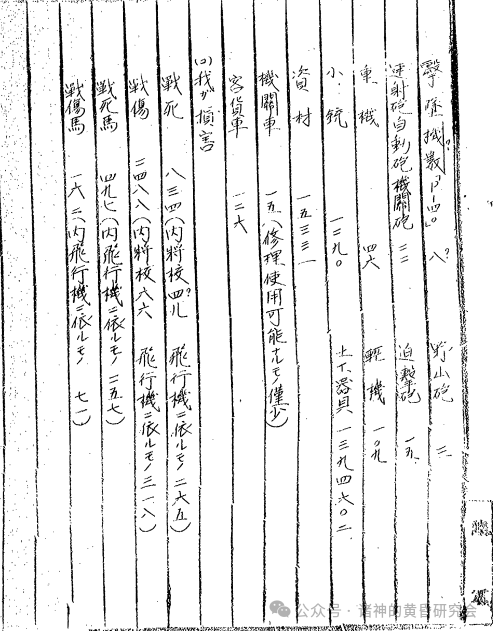 撃墜機数 P-40 八 野山砲 三
速射砲自動砲機關砲 二二 迫撃砲 一五
重機 四六 輕機 一〇九
小銃 一二九〇 土工器具 一三九四六〇二
資材 一五三三一
機關車 一五八(修理使用可能ナルモノ僅少)
客貨車 一二六
(ロ)我ガ損害
戦死 八三四(内將校四八 飛行機ニ依ルモノ二六五)
戦傷 二四八八(内將校六六 飛行機ニ依ルモノ三一八)
戦死馬 四九七(内飛行機ニ依ルモノ二五七)
戦傷馬 一六二(内飛行機ニ依ルモノ 七一)
公众号·诸神的黄昏研究会